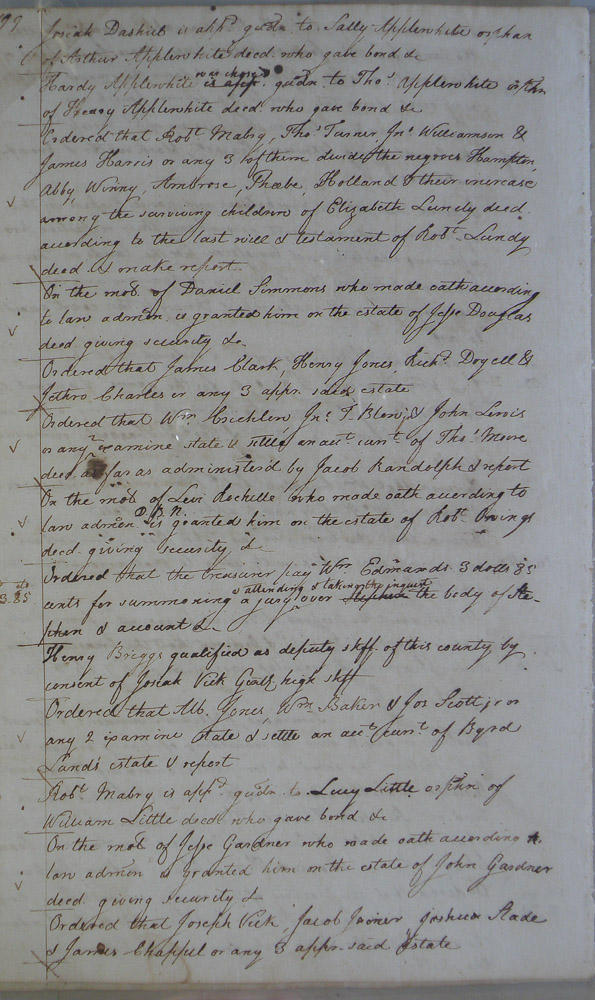 Josiah Dashiel is appd. gudn. to Sally Applewhite orphan
of Arthur Applewhite decd. who gave bond &c
Hardy Applewhite was chosed is app. gudn. to Thos. Applewhite orphn
of Henry Applewhite decd. who gave bond &c
Ordered that Robt. Mabry, Thos. Turner Jno. Williamson &
James Harris or any 3 of them divide the negroes Hampton,
Abby, Winny, Ambrose, Phoebe, Holland & their increase
among the surviving children of Elizabeth Lundy decd.
according to the last will & testament of Robt. Lundy
decd. & make report.
On the mot. of Daniel Simmons who made oath according
to law admon. is granted him on the estate of Jesse Douglas
decd giving security &c.
Ordered that James Clark, Henry Jones, Richd. &
Jethro Charles or any 3 appr. said estate
Ordered that Wm. Jno. T. Blow & John Lewis
or any 2 examine state & settle an acct. curt. of Thos. Moore
decd. as far as administerd by Jacob Randolph & report
On the mot. of Levi Rochelle who made oath according to
law admon D.B.N. is granted him on the estate of Robt.
decd. giving security, &
Ordered that the treasurer pay Wm. Edmands 3 dolls 85
3.85
cents for summoning & attending & taking the inquest a jury over the body of Ste-
phen & account &.
Henry Briggs qualified as deputy shff. of this county by
consent of Josiah Vick high shff
Ordered that Alb. Jones, Wm. Baker & Jos Scott jr or
any 2 examine state & settle an acct. curt. of Byrd
Land's estate & report
Robt. Mabry is appd. gudn. to Lucy Little orphn. of
William Little decd. who gave bond &c
On the mot. of Jesse Gardner who made oath according to
law admon is granted him on the estate of John Gardner
decd. giving security &
Ordered that Joseph Vick, Jacob Joiner Joshua
& James Chappel or any 3 appr. said Estate